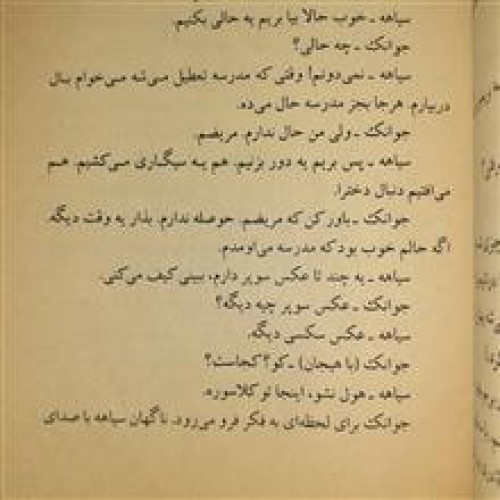 سیاهه ـ خوب حالا بیا بریم یه حالی بکنیم.
جوانک ـ چه حالی؟
سیاهه ـ نمی‌دونم! وقتی که مدرسه تعطیل می‌شه می‌خوام بال
دربیارم. هرجا بجز مدرسه حال می‌ده.
جوانک ـ ولی من حال ندارم. مریضم.
سیاهه ـ پس بریم یه دور بزنیم. هم یه سیگاری می‌کشیم. هم
می‌افتیم دنبال دخترا.
جوانک ـ باور کن که مریضم. حوصله ندارم. بذار یه وقت دیگه.
اگه حالم خوب بود که مدرسه می‌اومدم.
سیاهه ـ یه چند تا عکس سوپر دارم، ببینی کیف می‌کنی.
جوانک ـ عکس سوپر چیه دیگه؟
سیاهه ـ عکس سکسی دیگه.
جوانک (با هیجان) ـ کو؟ کجاست؟
سیاهه ـ هول نشو، اینجا تو کلاسوره.
جوانک برای لحظه‌ای به فکر فرو می‌رود. ناگهان سیاهه با صدای